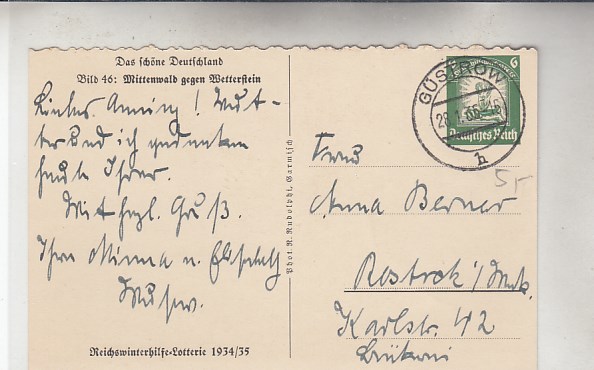 Das schöne Deutschland
Bild 46: Mittenwald gegen Wetterstein
Liebes ! Mut-
ter und ich gedenken
heute Ihrer.
Mit hrzl. Gruß.
Ihre Minna u. Elisabeth
Phot. R. Rudolphi, Garmisch
Reichswinterhilfe-Lotterie 1934/35
6
GÜSTROW
h
Deutsches Reich
5,-
Frau
Anna Berner
Rostock i/Meck.
Karlstr. 42